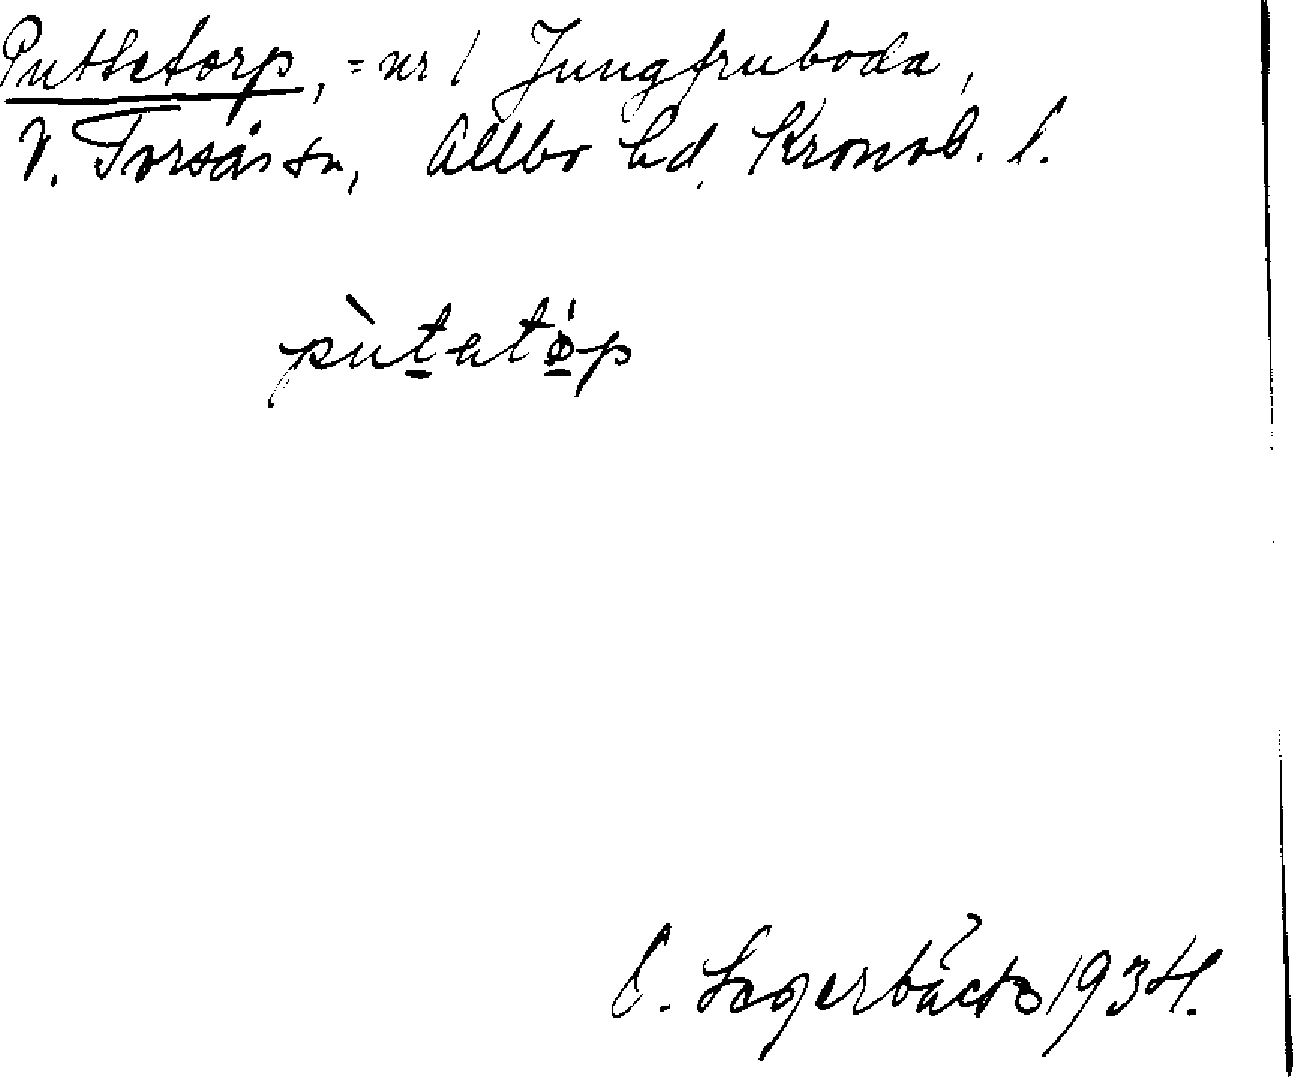 Puttetorp, = nr 1 Jungfruboda,
V. Torsås sn, Allbo hd, Kronob. l.
pùt̲atò̲p
E. Lagerbäck 1934.